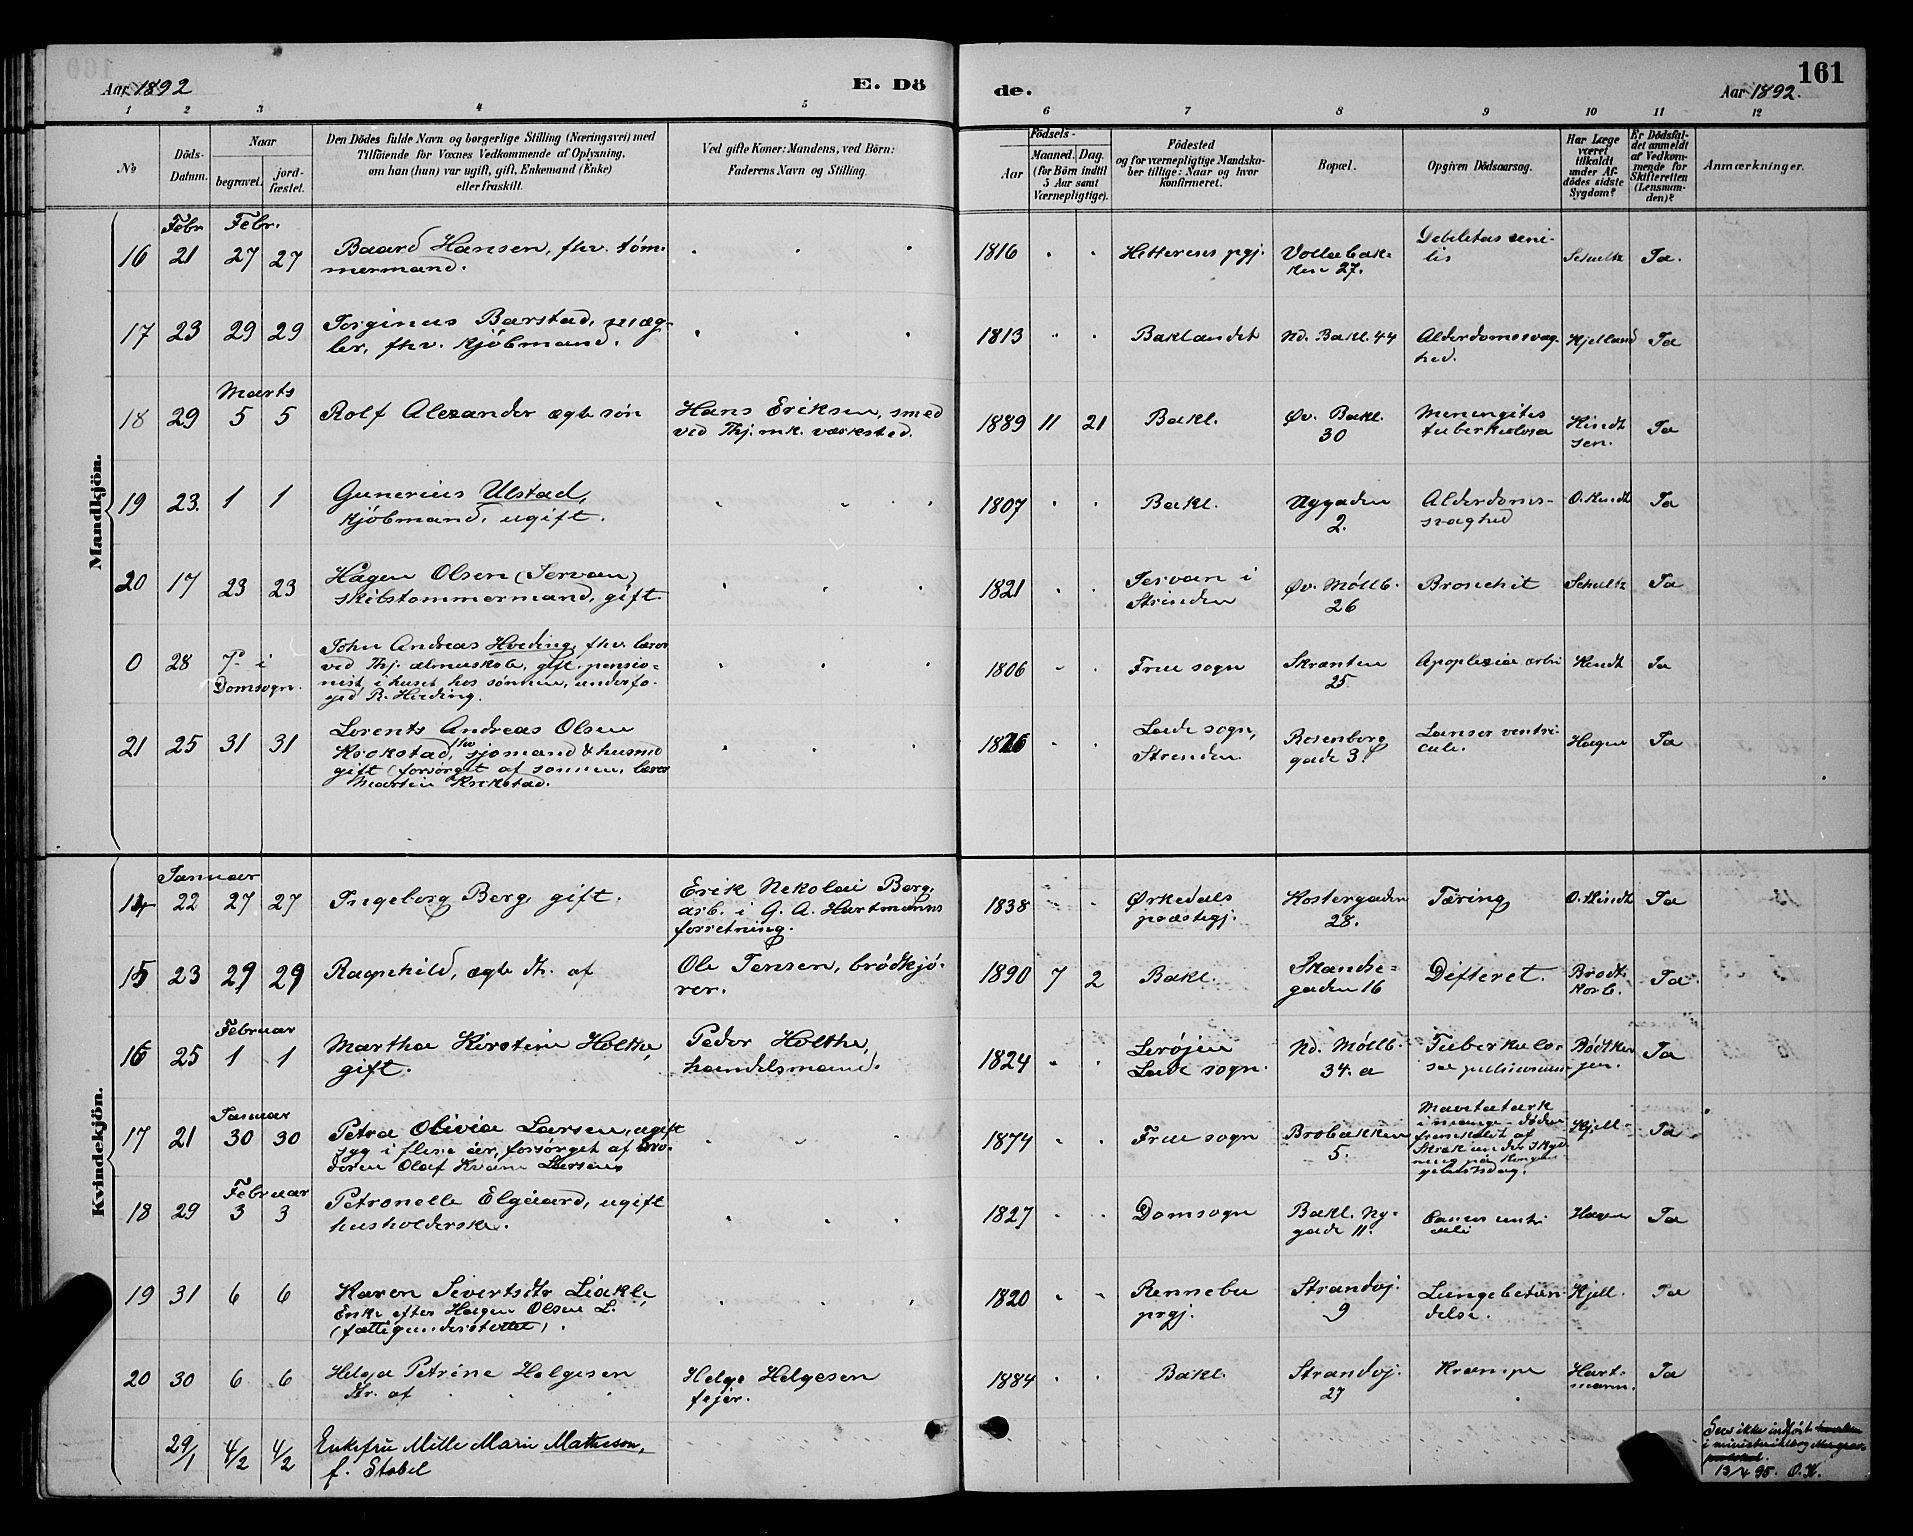 Aar 1892 E. Dö de. Aar 1892. 161
1 2 3 4 5 6 7 8 9 10 11 12
No
Döds-Datum.
Naar
begravet.
jord-fæstet.
Den Dödes fulde Navn og borgerlige Stilling (Næringsvei) med
Tilföiende for Voxnes Vedkommende af Oplysning,
om han (hun) var ugift, gift, Enkemand (Enke)
eller fraskilt.
Ved gifte Koner: Mandens, ved Börn:
Faderens Navn og Stilling.
Födsels-
Aar
Maaned. Dag.
(for Börn indtil
5 Aar samt
Værnepligtige).
Födested
og for værnepligtige Mandska-
ber tillige: Naar og hvor
konfirmeret.
Bopæl.
Opgiven Dödsaarsag.
Har Læge
været
tilkaldt
under Af-
dödes sidste
Sygdom?
Er Dödsfal-
det anmeldt
af Vedkom-
mende for
Skifteretten
(Lensman-
den)?
Anmærkninger.
Mandkjön.
Febr Febr.
16 21 27 27 Baard Hansen, fhv. tøm-
mermand.
1816 Hitterens pgj. Vollabak-
ken 27. Debilitas seni-
lis Schultz Ja.
17 23 29 29 Torginus Barstad, mæg-
ler, fhv. kjöbmand.
1813 Baklandet Nd. Bakl. 44 Alderdomssvag-
hed. Kjelland Ja
Marts
18 29 5 5 Rolf Alexander ægte søn Hans Eriksen, smed
ved Thj. mk. værksted.
1889 11 21 Bakl. Øv. Bakl.
30 Meningitis
tuberkulosa Hindt
sen. Ja
19 23. 1 1 Gunerius Ulstad,
kjöbmand, ugift.
1807 Bakl. Nygaden
2. Alderdoms-
svaghed O. Hindt Ja
20 17 23 23 Hagen Olsen (Jervan)
skibstømmermand, gift.
1821 Jervan i
Strinden Øv. Møllb.
26 Bronchit Schultz Ja
0 28 J- i
Domsogn. John Andreas Hveding, fhv. lærer
ved Thj. almuskole, gift, pensio-
nist i huset hos sønnen, underfo-
ged R. Hveding.
1806 Frue sogn Skrænten
25. Apoplexia Hindt Ja
21 25 31 31 Lorents Andreas Olsen
Krokstad, fhv. sjømand & husmd
gift (forsørget af sønnen, lærer
Martin Krokstad.
1826 Lade sogn,
Strinden. Rosenborg
gade 3. Canser ventri-
culi. Hagen Ja
Kvindekjön.
Januar
14 22 27 27 Ingeborg Berg, gift. Erik Nikolai Berg,
arb. i G. A. Hartmanns
forretning.
1838 Ørkedals
præstegj. Kostergaden
28. Tæring O. Hindt Ja
15 23 29 29 Ragnhild, ægte dtr. af Ole Jensen, brødkjø-
rer.
1890 7 2 Bakl. Skandse-
gaden 16 Difterit. Brodt-
korb. Ja
Februar
16 25 1 1 Martha Kirstine Holthe,
gift. Peder Holthe,
handelsmand.
1824 Lerøjen
Lade sogn. Nd. Møllb.
34. a Tuberkulo-
sa pulmonum Bødtker
jun. Ja
Januar
17 21 30 30 Petra Olivia Larsen, ugift
syg i flere år, forsørget af bro-
deren Olaf Kvam Larsens
1874 Frue sogn Brobakken
5. Mavekatark
i mange
fremkaldt af
skræk under skyd
ning på Kongens
gebursdag. Kjell- Ja
Februar
18 29 3 3 Petronelle Elgaard, ugift
husholderske.
1827 Domsogn Bakl. Ny-
gade 11. Hagen Ja
19 31 6 6 Karen Sivertsdtr Liakle,
Enke efter Hagen Olsen L.
(fattigunderstøttet).
1820 Rennebu
prgj. Strandvj.
9 Lungebetæn-
delse. Kjell. Ja
20 30 6 6 Helga Petrine Helgesen
dtr. af Helge Helgesen
fejer.
1884 Bakl. Strandvj.
27 Krampe Hart-
mann. Ja
29/1 4/2 4/2 Enkefru Mille Marie Matheson,
f. Stabel
Sees ikke indført
i ministerialbog
13/4 95. O. K.